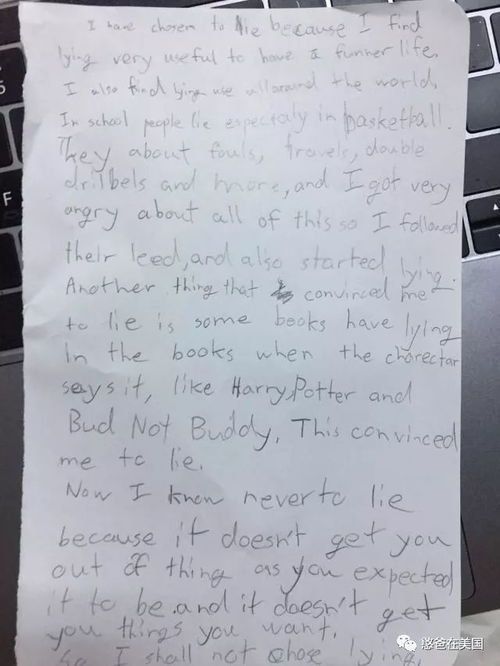 I have chosen to lie because I find
lying very useful to have a funner life.
I also find lying use allaround the world.
In school people lie especialy in basketball.
They about fouls, travels, double
dribbels and more, and I got very
angry about all of this so I followed
their leed, and also started lying.
Another thing that convinced me
to lie is some books have lying
in the books when the charectar
says it, like Harry Potter and
Bud Not Buddy. This convinced
me to lie.
Now I know never to lie
because it doesn't get you
out of thing as you expected
it to be. and it doesn't get
you things you want.
So I shall not chose lying
憨爸在美国